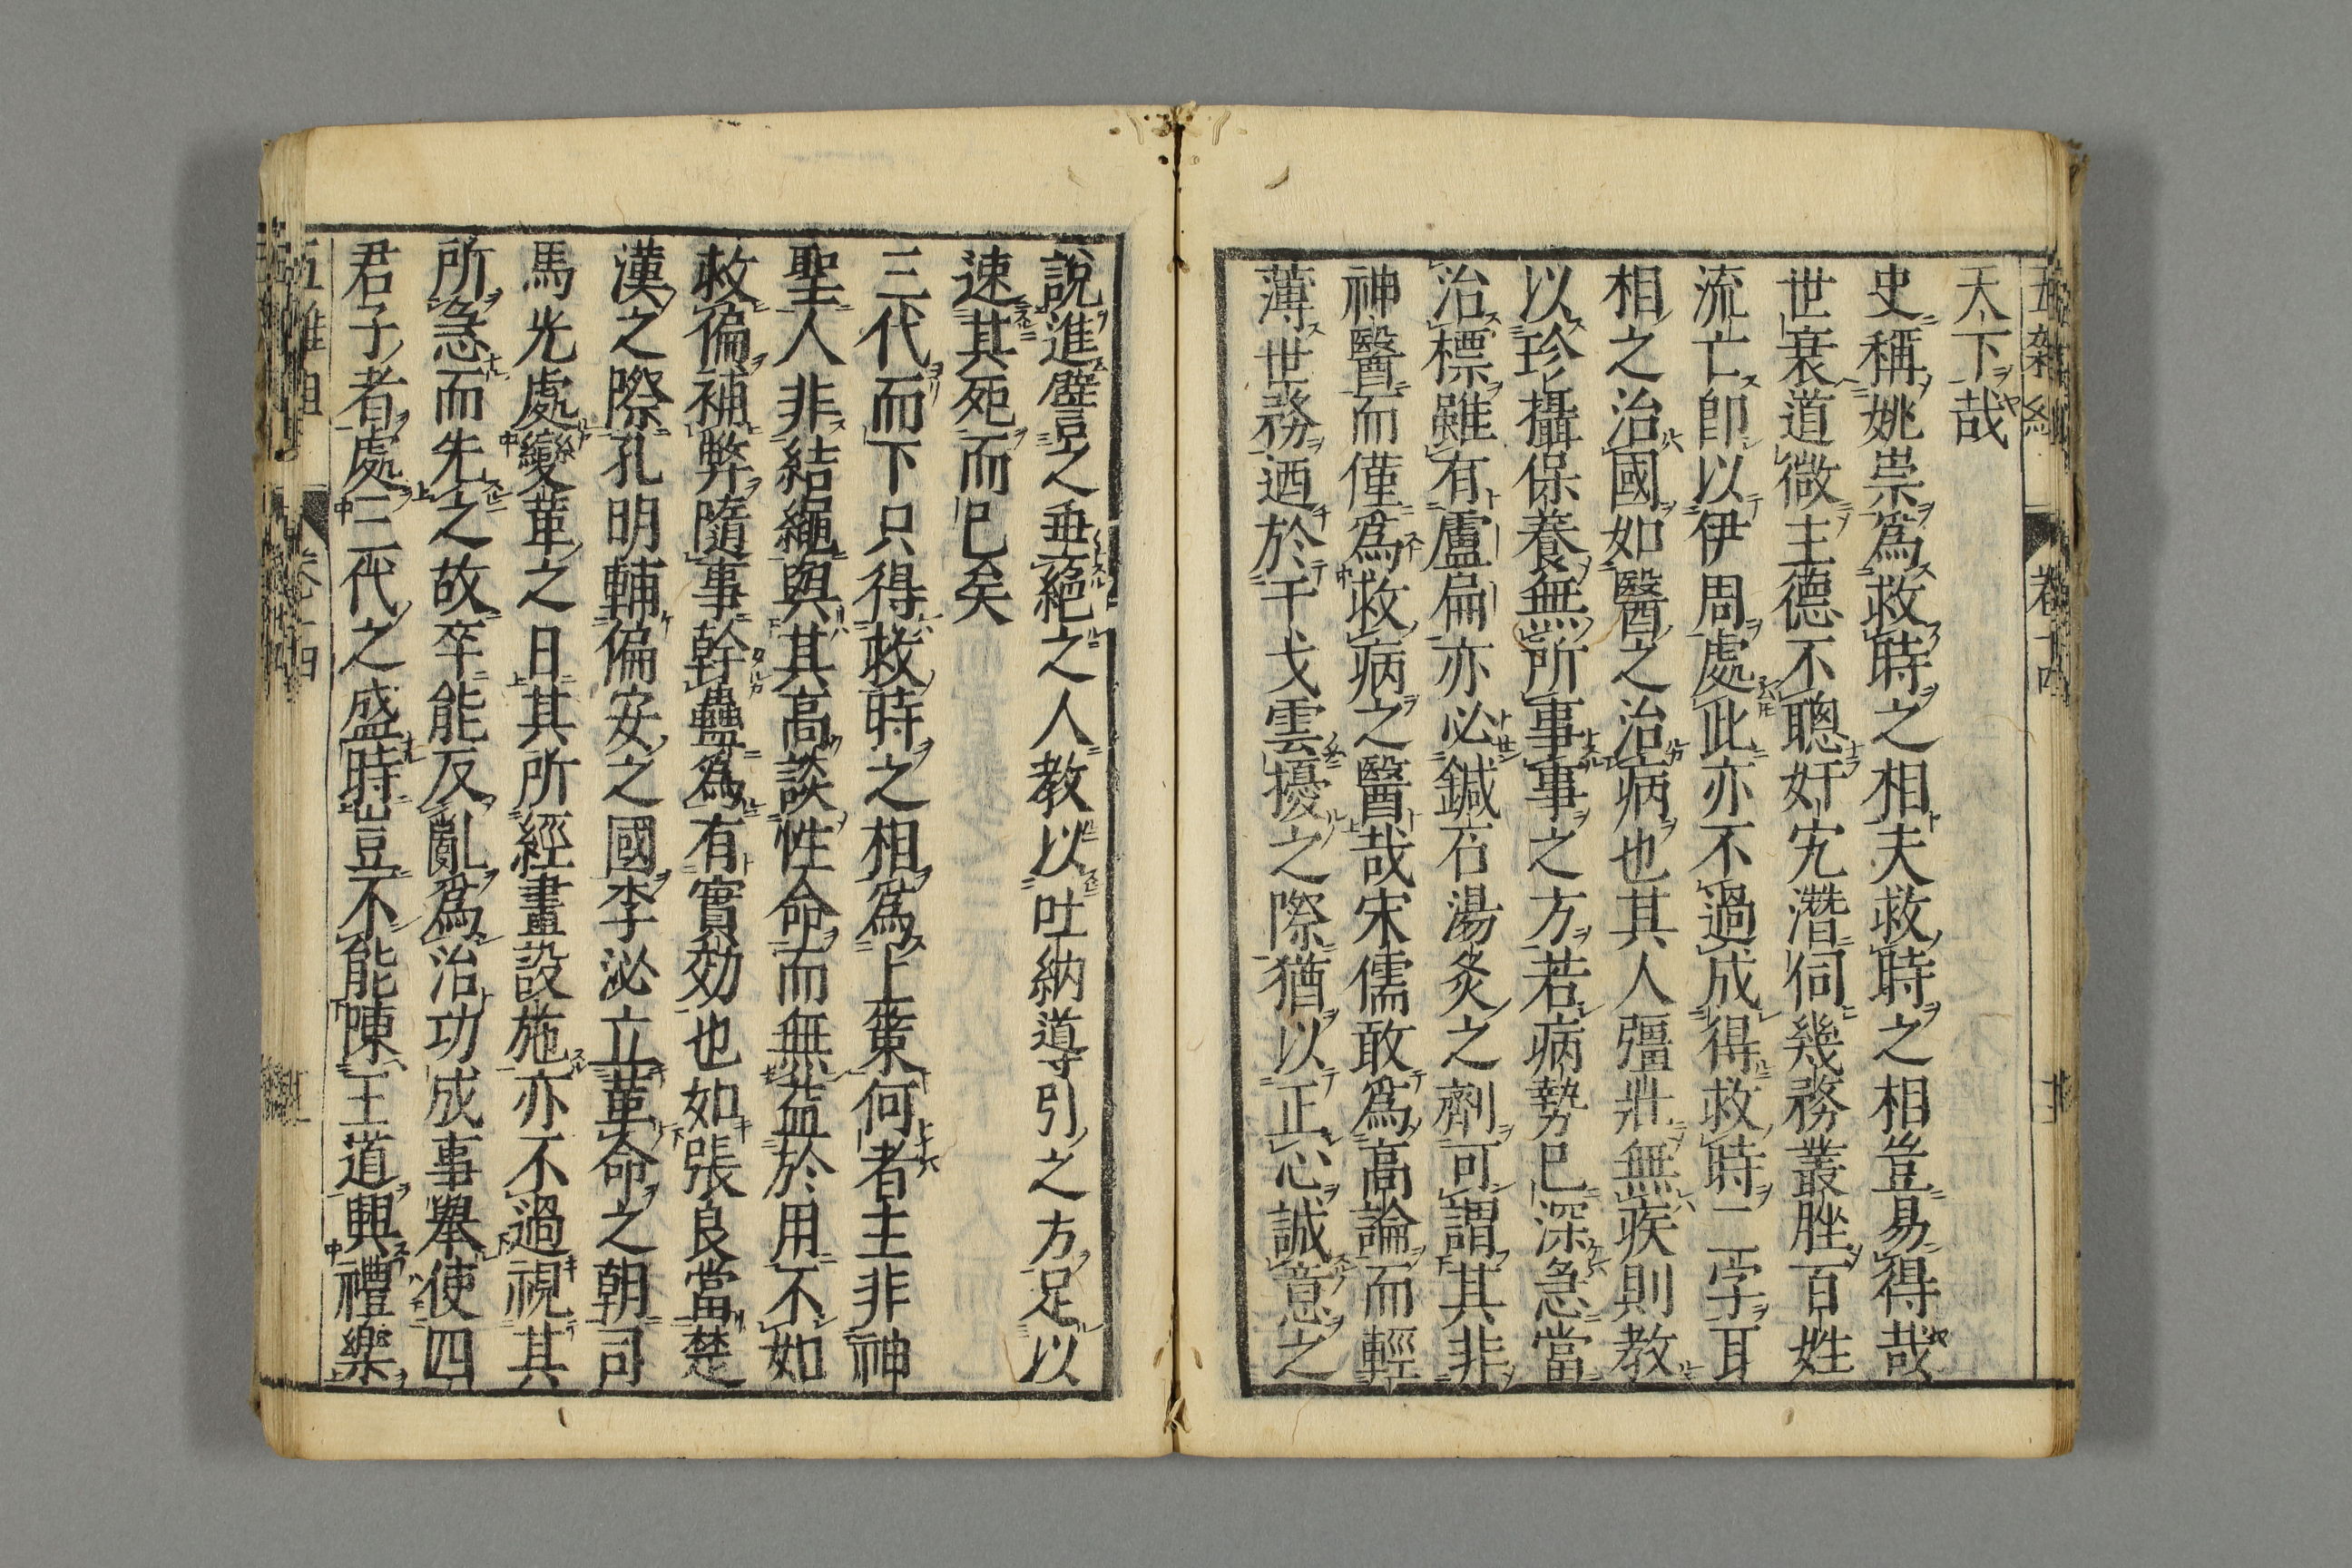 天下哉
史稱姚祟爲救時之相夫救時之相豈易得哉
世衰道微主德不聰奸宄潛伺幾務叢脞百姓
流亡卽以伊周處此亦不過成得救時二字耳
相之治國如醫之治病也其人彊壯無疾則教
以珍攝保養無所事事之方若病勢已深急當
治標雖有盧扁亦必鍼石湯灸之劑可謂其非
神醫而僅爲救病之醫哉宋儒敢爲高論而輕
薄世務迺於干戈雲擾之際猶以正心誠意之
說進譬之垂絕之人教以吐納導引之方足以
速其死而已矣
三代而下只得救時之相爲上策何者主非神
聖人非結繩與其高談性命而無益於用不如
救偏補弊隨事幹蠱爲有實効也如張良當楚
漢之際孔明輔偏安之國李泌立革命之朝司
馬光處變革之日其所經畫設施亦不過視其
所急而先之故卒能反亂爲治功成事舉使四
君子者處三代之盛時豈不能陳王道興禮樂